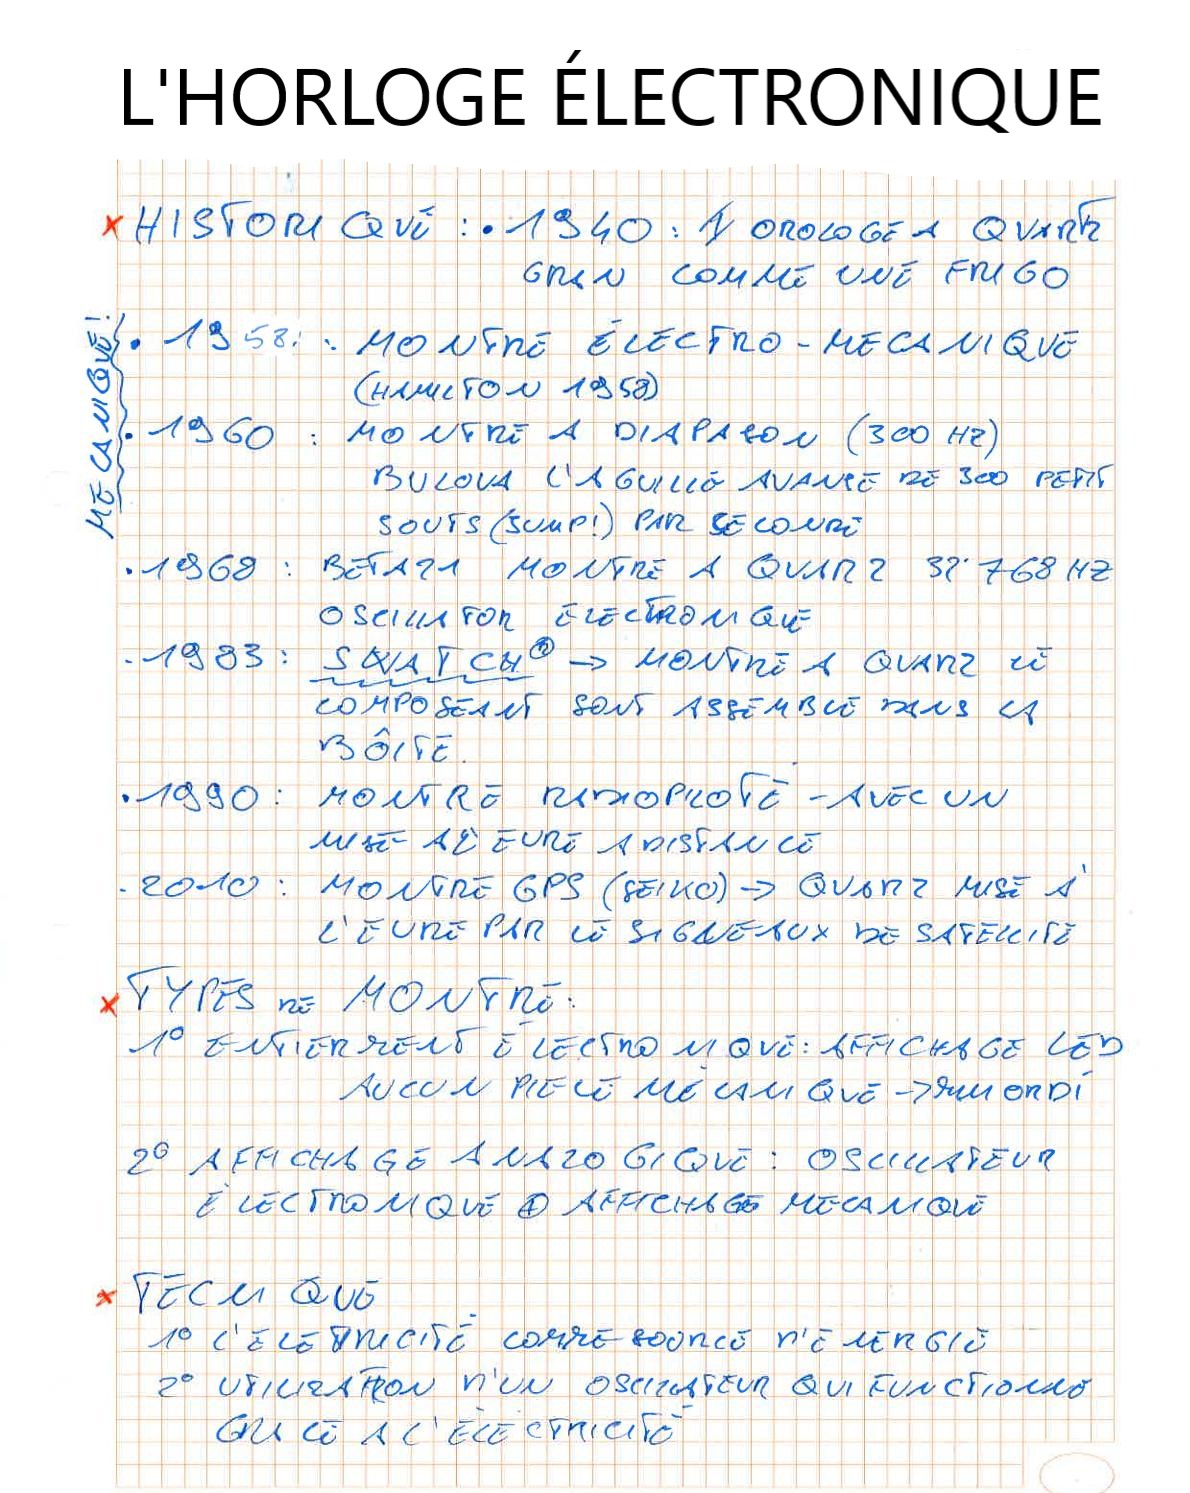 L'HORLOGE ÉLECTRONIQUE
× HISTORIQUE : • 1940 : 1 OROLOGE A QUARTZ
GRAN COMME UNE FRIGO
MECANIQUE!
• 1958 : MONTRE ÉLECTRO-MECANIQUE
(HAMILTON 1958)
• 1960 : MONTRE A DIAPASON (300 HZ)
BULOVA L'AGUILLE AVANCE DE 300 PETIT
SOUTS (JUMP!) PAR SECONDE
• 1968 : BETA21 MONTRE A QUARZ 32'768 HZ
OSCILLATOR ELECTRONIQUE
• 1983 : SWATCH® → MONTRE A QUARZ LE
COMPOSEANT SONT ASSEMBLE DANS LA
BÔITE.
• 1990 : MONTRE RADIOPILOTE - AVEC UN
MISE A L'EURE A DISTANCE
• 2010 : MONTRE GPS (SEIKO) → QUARZ MISE A
L'EURE PAR LE SIGNEAUX DE SATELLITE
× TYPES DE MONTRE :
1° ENTIERMENT ÉLECTRONIQUE : AFFICHAGE LED
AUCUN PIECE MÉCANIQUE →
2° AFFICHAGE ANALOGIQUE : OSCILLATEUR
ÉLECTRONIQUE ⊕ AFFICHAGE MECANIQUE
× TECNIQUE
1° L'ELETTRICITÉ COMME SOURCE D'ENERGIE
2° UTILIZATION D'UN OSCILLATEUR QUI FUNCTIONNE
GRACE A L'ELECTRICITÉ